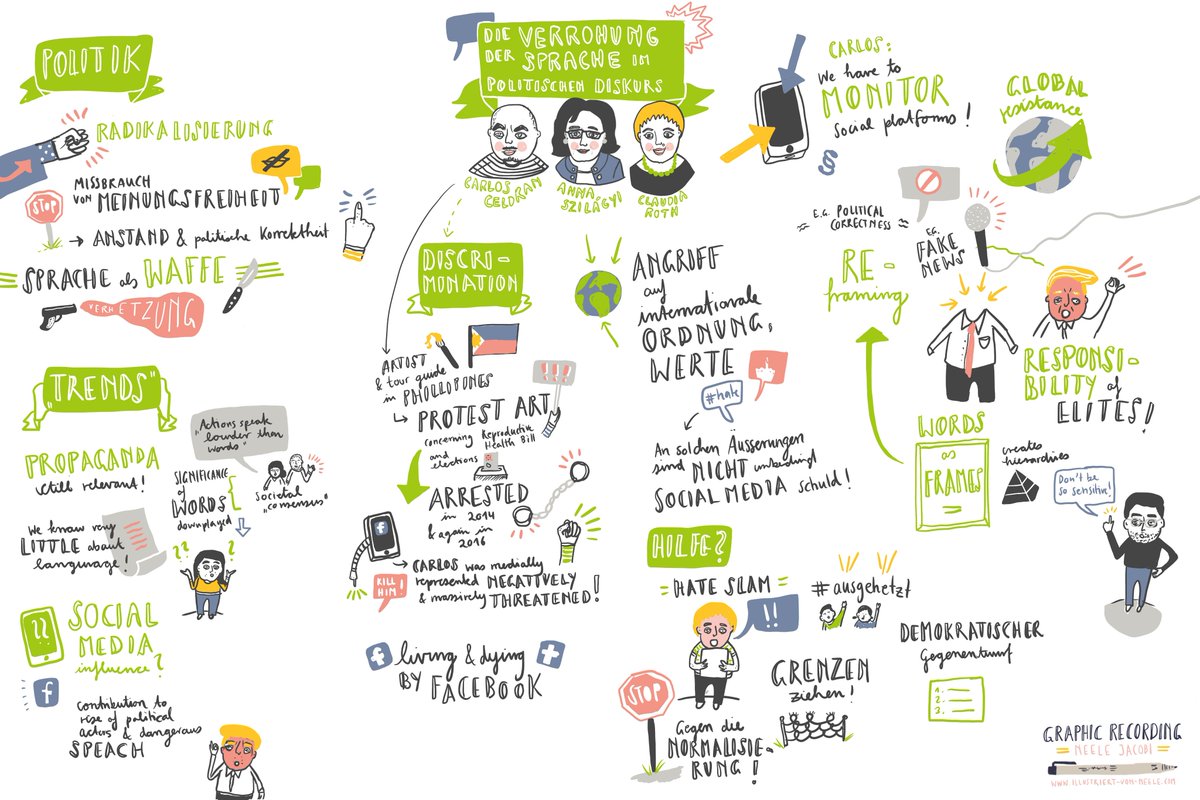 DIE VERROHUNG
DER SPRACHE IM
POLITISCHEN DISKURS
CARLOS
CELDRAN
ANNA
SZILÁGYI
CLAUDIA
ROTH
POLITIK
RADIKALISIERUNG
MISSBRAUCH
von MEINUNGSFREIHEIT
STOP
→ ANSTAND & politische Korrektheit
SPRACHE als WAFFE
VERHETZUNG
"TRENDS"
PROPAGANDA
still relevant!
"Actions speak
louder than
words"
SIGNIFICANCE
of
WORDS
downplayed
societal
"consensus"
We know very
LITTLE about
language!
?? ?
SOCIAL
MEDIA
influence?
f
contribution to
rise of political
actors & dangerous
SPEACH
DISCRI-
MINATION
ARTIST
& tour guide
in PHILLIPINES
!!!
PROTEST ART
concerning Reproductive
Health Bill
and
elections
ARRESTED
in 2014
& again in
2016
f
KILL
HIM!
→ CARLOS was medially
represented NEGATIVELY
& massively THREATENED!
living & dying
BY FACEBOOK
ANGRIFF
auf
internationale
ORDNUNG,
WERTE
#hate
An solchen Äusserungen
sind NICHT unbedingt
SOCIAL MEDIA schuld!
HILFE?
= HATE SLAM =
!!
#ausgehetzt
STOP
Gegen die
NORMALISIE-
RUNG!
GRENZEN
ziehen!
DEMOKRATISCHER
Gegenentwurf
1.
2.
3.
CARLOS:
We have to
MONITOR
Social platforms!
§
GLOBAL
resistance
E.G. POLITICAL
CORRECTNESS
E.G.
FAKE
NEWS
RE-
framing
RESPONSI-
BILITY of
ELITES!
WORDS
as
FRAMES
creates
hierarchies
Don't be
so sensitive!
GRAPHIC RECORDING
= NEELE JACOBI =
WWW.ILLUSTRIERT-VON-NEELE.COM